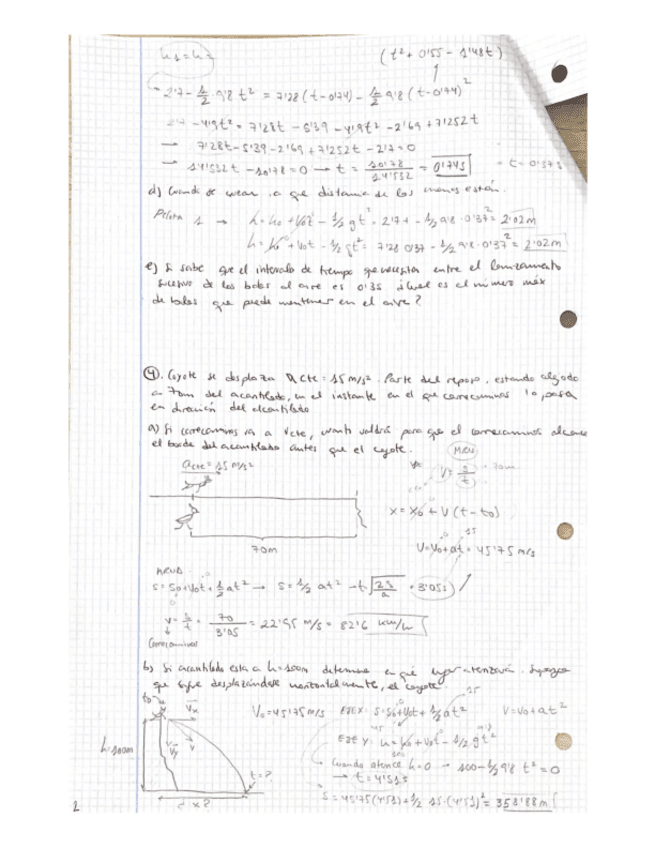 (t² + 0'55 - 1'48t)
2'7 - 1/2 · 9'8 t² = 7'28 (t - 0'74) - 1/2 9'8 (t - 0'74)²
2'7 - 4'9t² = 7'28t - 5'39 - 4'9t² - 2'69 + 7'252t
→ 7'28t - 5'39 - 2'69 + 7'252t - 2'7 = 0
→ 14'532t - 10'78 = 0 → t = 10'78 / 14'532 = 0'74s
d) Cuando se cruzan, a que distancia de las manos están.
Pelota 1 → h = h0 + V0t - 1/2 g t² = 2'7 - 1/2 9'8 · 0'37² = 2'02m
h = h0 + V0t - 1/2 gt² = 7'28 · 0'37 - 1/2 9'8 · 0'37² = 2'02m
e) Si sabe que el intervalo de tiempo que necesitas entre el lanzamiento
sucesivo de las bolas al aire es 0'3s ¿Cual es el número máx
de bolas que puede mantener en el aire?
4. Coyote se desplaza a cte = 15 m/s². Parte del reposo, estando
a 70m del acantilado, en el instante en el que correcaminos lo pasa
en dirección del acantilado
a) Si correcaminos va a Vcte, cuanto valdrá para que el correcaminos alcance
el borde del acantilado antes que el coyote.
MRU
acte = 15 m/s²
V = s/t
70m
x = x0 + V (t - t0)
15
V = V0 + at = 45'75 m/s
70m
MRUA
s = s0 + V0t + 1/2 at² → s = 1/2 at² → t √2s/a = 3'05s
v = s/t = 70/3'05 = 22'95 m/s = 82'6 km/h
Correcaminos
b) Si acantilado esta a h = 100m determine en qué lugar aterrizará. Suponga
que sigue desplazándose horizontalmente, el coyote.
t0
Vx
V0 = 45'75 m/s EJE X: s = s0 + V0t + 1/2 at² V = V0 + at²
15
Vy
v
EJE Y: h = h0 + V0t - 1/2 gt²
h = 100m
Cuando aterrice h = 0 → 100 - 1/2 9'8 t² = 0
t = ?
→ t = 4'51s
d x?
s = 45'75 (4'51) + 1/2 15 · (4'51)² = 358'88m
2